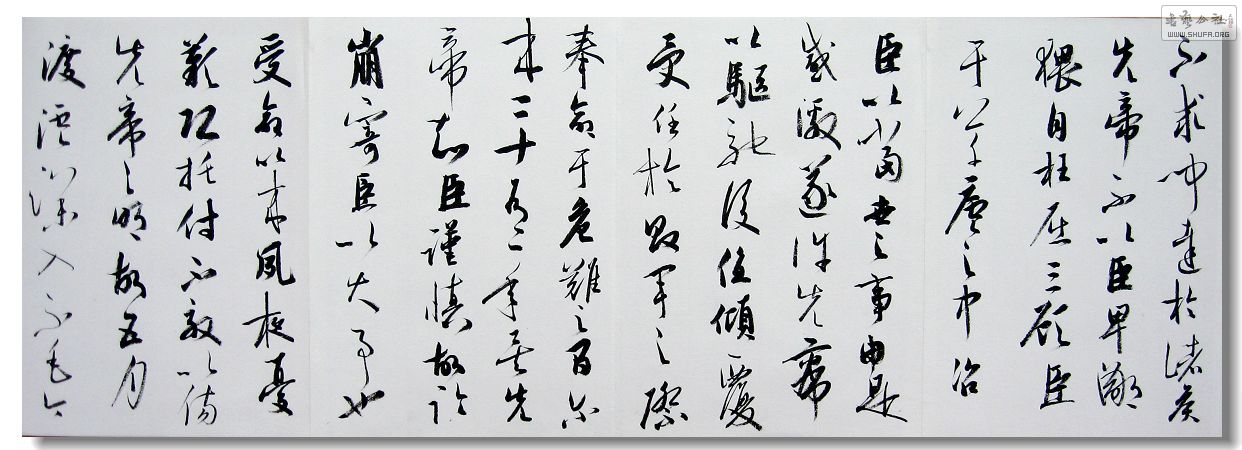 不求聞達於諸侯
先帝不以臣卑鄙
猥自枉屈三顧臣
于草廬之中咨
臣以當世之事由是
感激遂許先帝
以驅馳後值傾覆
受任於敗軍之際
奉命于危難之間尔
来二十有一年矣先
帝知臣謹慎故臨
崩寄臣以大事也
受命以来夙夜憂
歎恐托付不效以傷
先帝之明故五月
渡瀘深入不毛今
书艺公社
WWW.SHUFA.ORG